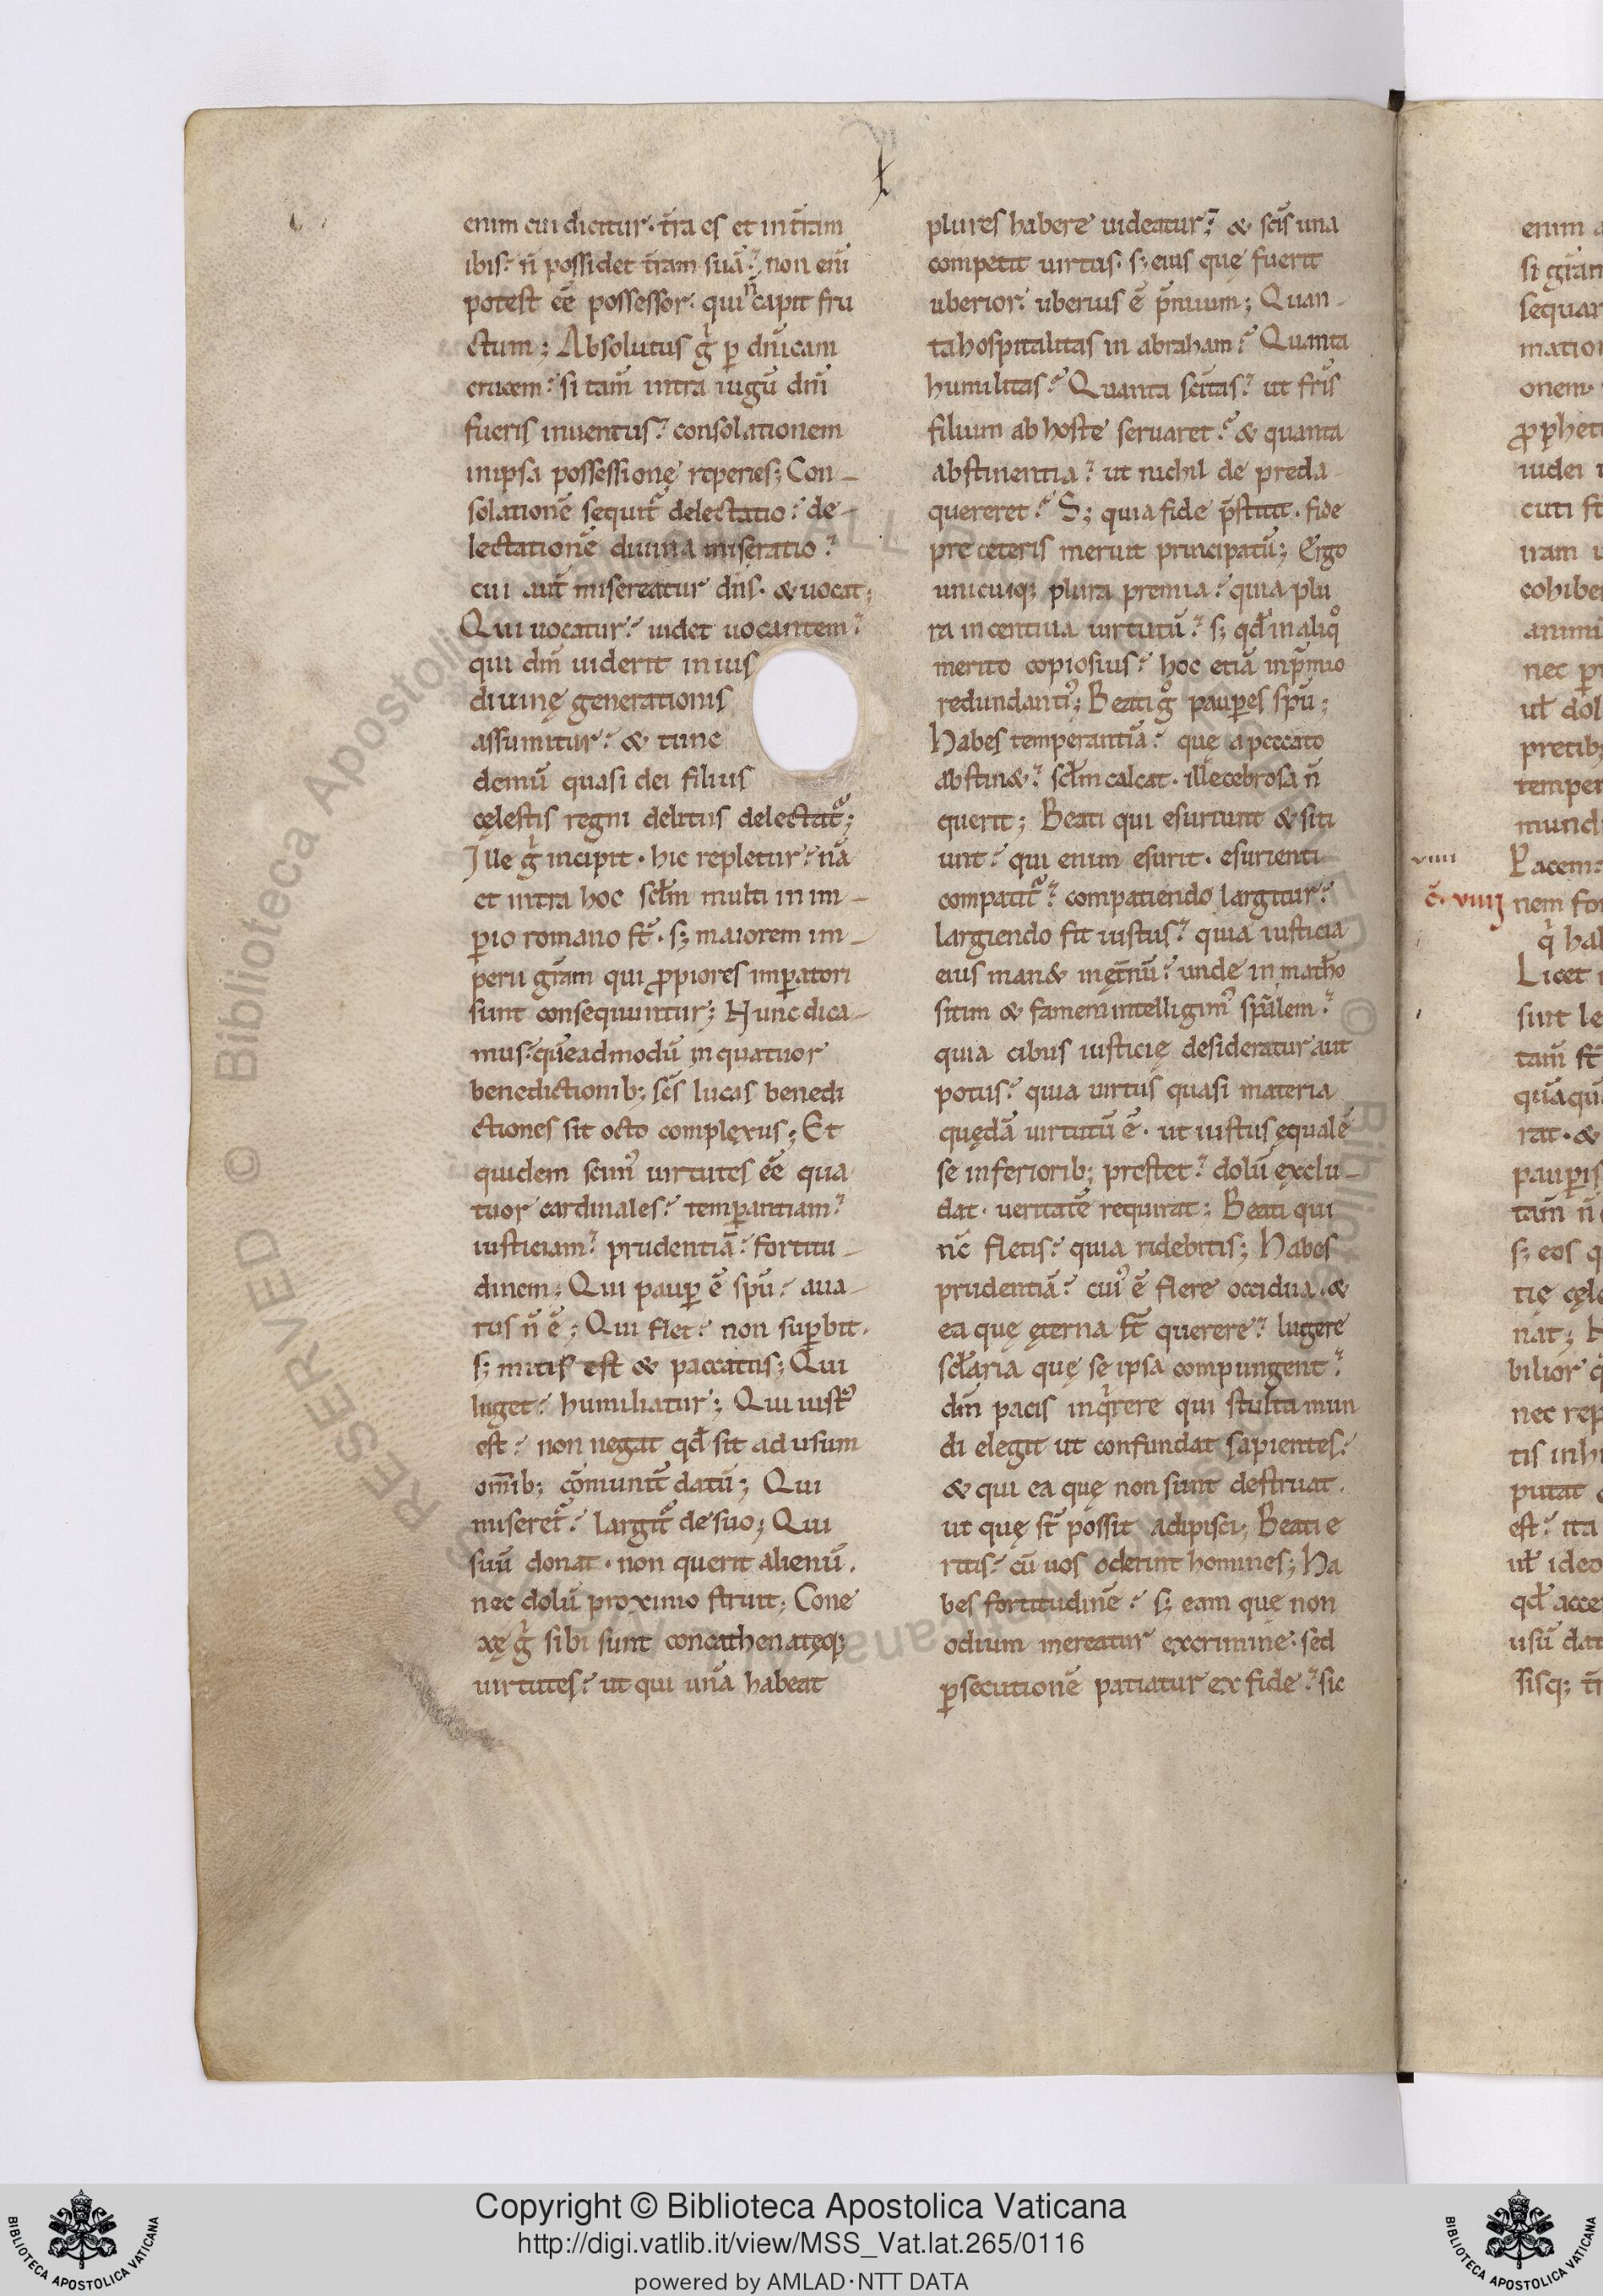 enim cui dicitur· t̄ra es et in t̄ram
ibis· n̄ possidet t̄ram suā· non eni̅
potest ēē possessor· qui n̄ capit fru
ctum; Absolutus gͥ p̱ dn̄icam
crucem· si tam̄ intra iugū dn̄i
fueris inuentus· consolationem
in ipsa possessionę reperies; Con-
solationē sequit᷑ delectatio· de-
lectationē diuina miseratio·
cui aut̄ misereatur dn̄s· & uocat;
Qui uocatur· uidet uocantem·
qui dm̄ uiderit in ius
diuinę generationis
assumitur· & tunc
demū quasi dei filius
cęlestis regni delitiis delectat᷑;
Ille gͥ incipit· hic repletur· nā
et intra hoc sc̄lm multi in im-
p̱io romano st̄· s; maiorem im-
perii gr̄am qui ꝓpiores imp̱atori
sunt consequuntur; Hunc dica-
mus· quēadmodū in quatuor
benedictionib; sc̄s lucas benedi
ctiones sit octo complexus; Et
quidem scim᷒ uirtutes ēē qua
tuor cardinales· temp̱antiam·
iusticiam· prudentiā· fortitu-
dinem; Qui paup̱ ē sp̄u· aua-
rus n̄ ē; Qui flet· non sup̱bit·
s; mitis est & paccatus; Qui
luget· humiliatur; Qui iust᷒
est· non negat qd̄ sit ad usum
om̄ib; cōmunit̄ datū; Qui
miseret᷑· largit᷑ de suo; Qui
suū donat· non querit alienū·
nec dolū proximo struit; Cone
xę gͥ sibi sunt concathenatęq;
uirtutes· ut qui unā habeat
plures habere uideatur; & sc̄is una
competit uirtus· s; eius quę fuerit
uberior· uberius ē p̄mium; Quan-
ta hospitalitas in abraham· Quanta
humilitas· Quanta sc̄itas· ut fr̄is
filium ab hoste seruaret· & quanta
abstinentia· ut nichil de preda
quereret· S; quia fide p̄stitit· fide
pre ceteris meruit principatū; Ergo
unicuiq; plura premia· quia plu
ra incentiua uirtutū· s; qd̄ in aliqͦ
merito copiosius· hoc etiā in p̄mio
redundanti᷒; Beati gͦ paup̱es sp̄u;
Habes temperantiā· quę a peccato
abstin&· sc̄lm calcat· illecebrosa n̄
querit; Beati qui esuriunt & siti
unt· qui enim esurit· esurienti
compatit᷑· compatiendo largitur·
largiendo fit iustus· quia iusticia
eius man& in ęt̄nū· unde in math̄o
sitim & famem intelligim᷒ sp̄alem·
quia cibus iusticię desideratur aut
potus· quia uirtus quasi materia
quędā uirtutū ē· ut iustus ęqualē
se inferiorib; prestet· dolū exclu-
dat· ueritatē requirat; Beati qui
nc̄ fletis· quia ridebitis; Habes
prudentiā· cui᷒ ē flere occidua· &
ea quę ęterna st̄ querere· lugere
sc̄laria quę se ipsa compungent·
dm̄ pacis inqͥrere qui stulta mun
di elegit ut confundat sapientes·
& qui ea quę non sunt destruat·
ut quę st̄ possit adipisci; Beati e
ritis· cū uos oderint homines; Ha
bes fortitudinē· s; eam quę non
odium mereatur ex crimine· sed
p̱secutionē patiatur ex fide· sic
uiiii
c̄· uiiij
Copyright © Biblioteca Apostolica Vaticana
http://digi.vatlib.it/view/MSS_Vat.lat.265/0116
powered by AMLAD·NTT DATA
BIBLIOTECA APOSTOLICA VATICANA
BIBLIOTECA APOSTOLICA VATICANA